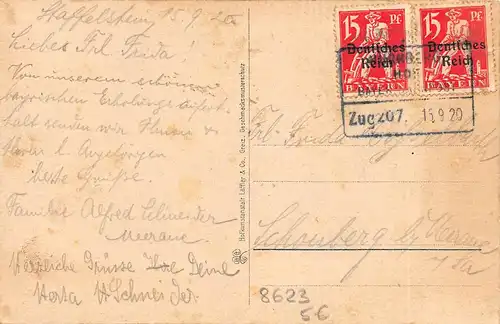 Staffelstein, 15.9.20
Liebes Frl Frida
Von unserem schönen
bayrischen Erholungsaufent-
halt senden wir Ihnen &
werten l. Angehörigen
beste Grüße.
Familie Alfred Schneider
Meerane
Herzliche Grüsse Ihre Deine
Herta Schneider.
Hofkunstanstalt Löffler & Co., Greiz. Geschmacksmusterschutz
15 Pf
Deutsches
Reich
BAYERN
15 Pf
Deutsches
Reich
BAYERN
Zug 207. 15.9.20
Frl. Frida
Schönberg b/ Meerane
i/Sa
8623
56